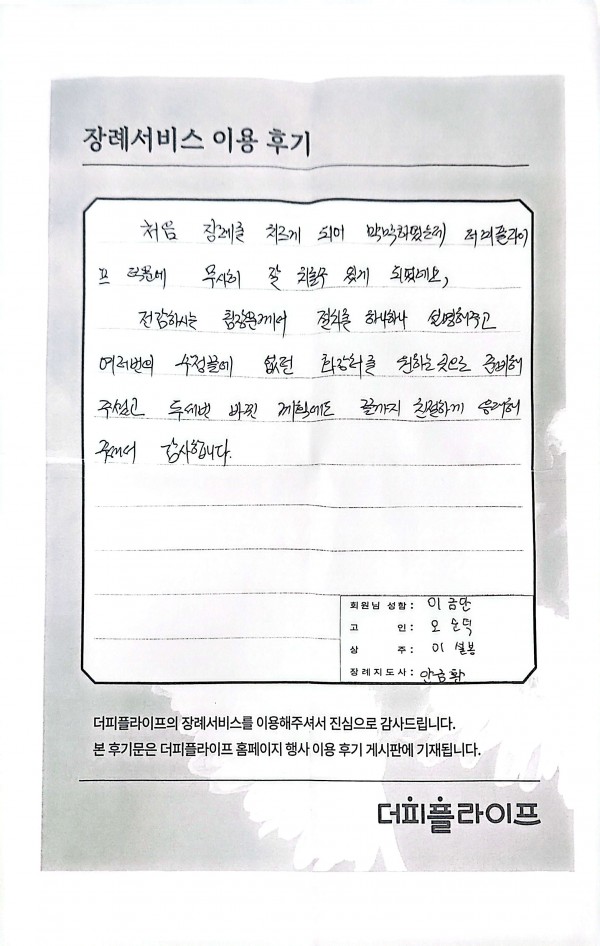 장례서비스 이용 후기
처음 장례를 치르게 되어 막막하였는데 더피플라이
프 덕분에 무사히 잘 치를수 있게 되었네요,
전감하시는 팀장님께서 절차를 하나하나 설명해주고
여러번의 수정끝에 없던 화장터를 원하는곳으로 준비해
주셨고 두세번 바뀐 계획에도 끝까지 친절하게 응대해
주셔서 감사합니다.
회원님 성함 : 이금안
고 인 : 오순덕
상 주 : 이설봉
장례지도사 : 안금환
더피플라이프의 장례서비스를 이용해주셔서 진심으로 감사드립니다.
본 후기문은 더피플라이프 홈페이지 행사 이용 후기 게시판에 기재됩니다.
더피플라이프